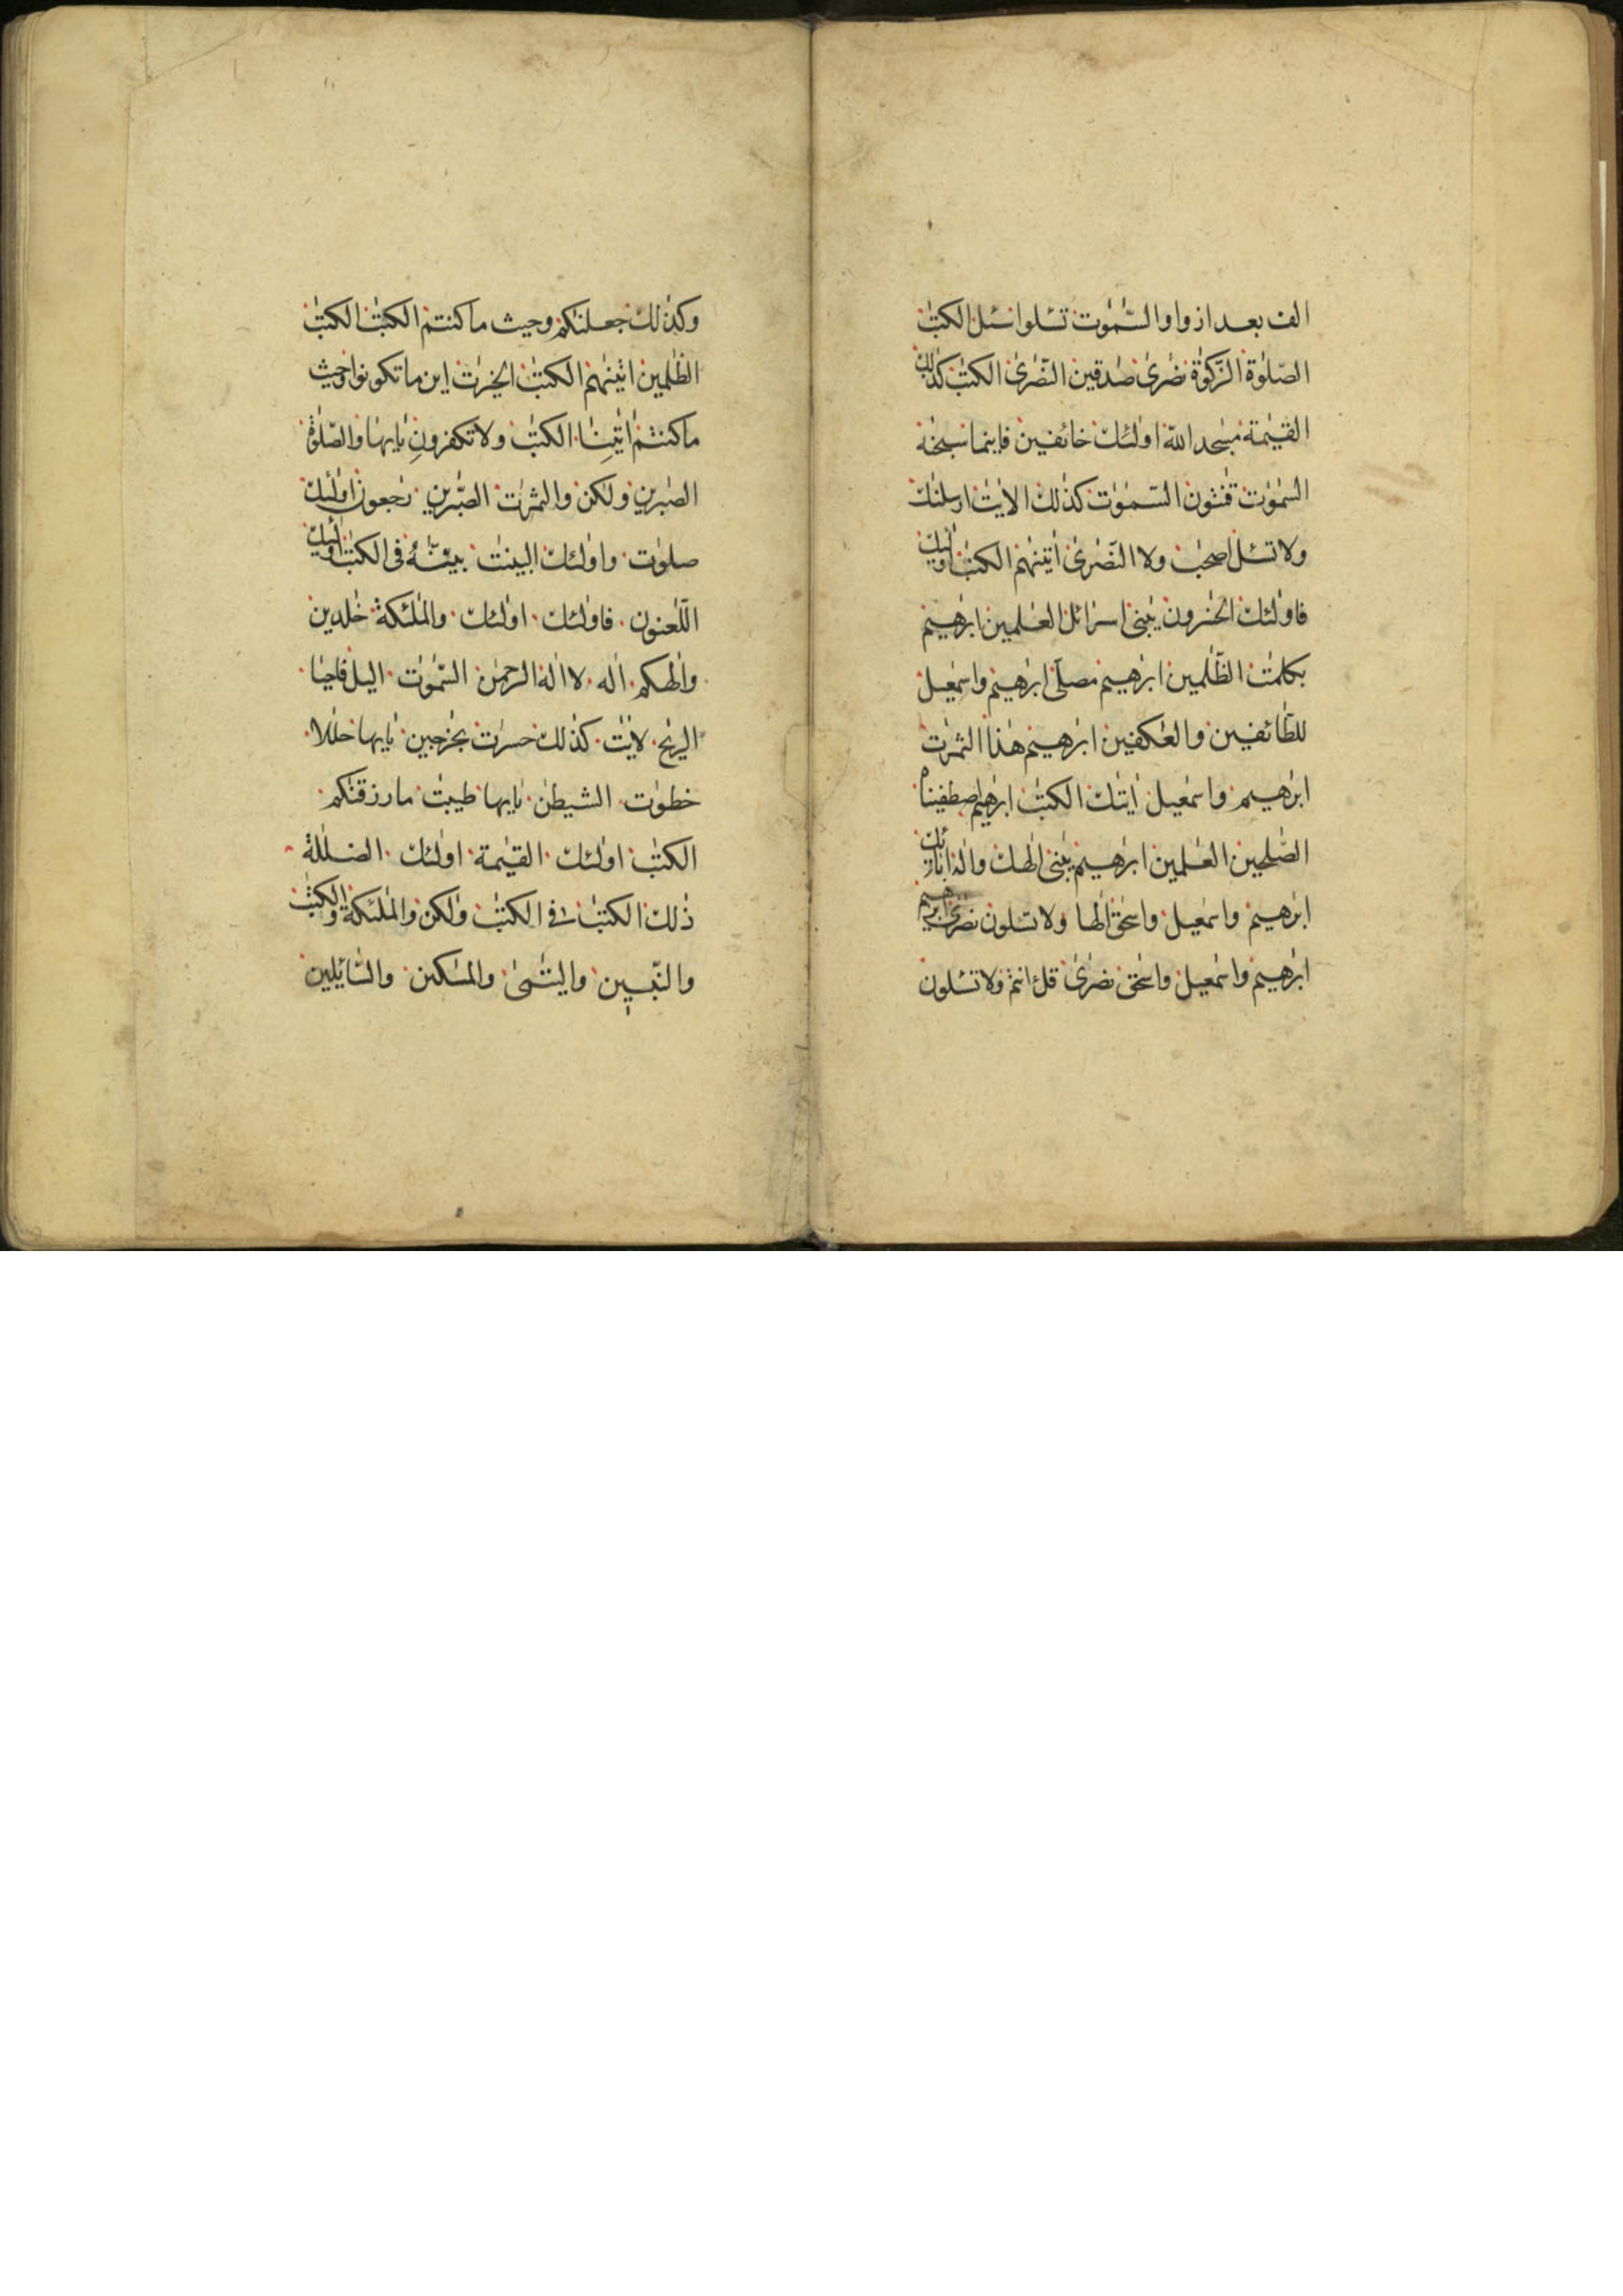 الف بعد از واو السّمٰوٰت تسئلوا سئل الكتٰب
الصّلوٰة الزّكوٰة نصٰرىٰ صٰدقين النّصٰرىٰ الكتٰب كذٰلك
القيٰمة مسٰجد اللّه اولٰئك خائفين فاينما سبحٰنه
السمٰوٰت قٰنتون السّمٰوٰت كذٰلك الايٰت ارسلنٰك
ولا تسئل اصحٰب ولا النّصٰرىٰ اٰتينٰهم الكتٰب اولٰئك
فاولٰئك الخٰسرون يٰبنى اسرٰائل العٰلمين ابرٰهيم
بكلمٰت الظّٰلمين ابرٰهيم مصلّى ابرٰهيم واسمٰعيل
للطّائفين والعٰكفين ابرٰهيم هٰذا الثمرٰت
ابرٰهيم واسمٰعيل اٰيٰتك الكتٰب ابرٰهيم اصطفينٰه
الصّٰلحين العٰلمين ابرٰهيم يٰبنى الٰهك والٰه اٰبائك
ابرٰهيم واسمٰعيل واسحٰق الٰها ولا تسئلون نصٰرىٰ ابرٰهيم
ابرٰهيم واسمٰعيل واسحٰق نصٰرىٰ قل ءانتم ولا تسئلون
وكذٰلك جعلنٰكم وحيث ما كنتم الكتٰب الكتٰب
الظّٰلمين اٰتينٰهم الكتٰب الخيرٰت اين ما تكونوا وحيث
ما كنتم اٰيٰتنا الكتٰب ولا تكفرونِ يٰايها والصّلوٰة
الصٰبرين ولٰكن والثمرٰت الصّٰبرين رٰجعون اولٰئك
صلوٰت واولٰئك البينٰت بيّنّٰه فى الكتٰب اولٰئك
اللّٰعنون فاولٰئك اولٰئك والملٰئكة خٰلدين
والٰهكم الٰه لا الٰه الرحمٰن السّمٰوٰت اليل فاحيا
الريٰح لايٰت كذٰلك حسرٰت بخٰرجين يٰايها حلٰلا
خطوٰت الشيطٰن يٰايها طيبٰت ما رزقنٰكم
الكتٰب اولٰئك القيٰمة اولٰئك الضلٰلة
ذٰلك الكتٰب فى الكتٰب ولٰكن والملٰئكة والكتٰب
والنّبيّين واليتٰمىٰ والمسٰكين والسّائلين